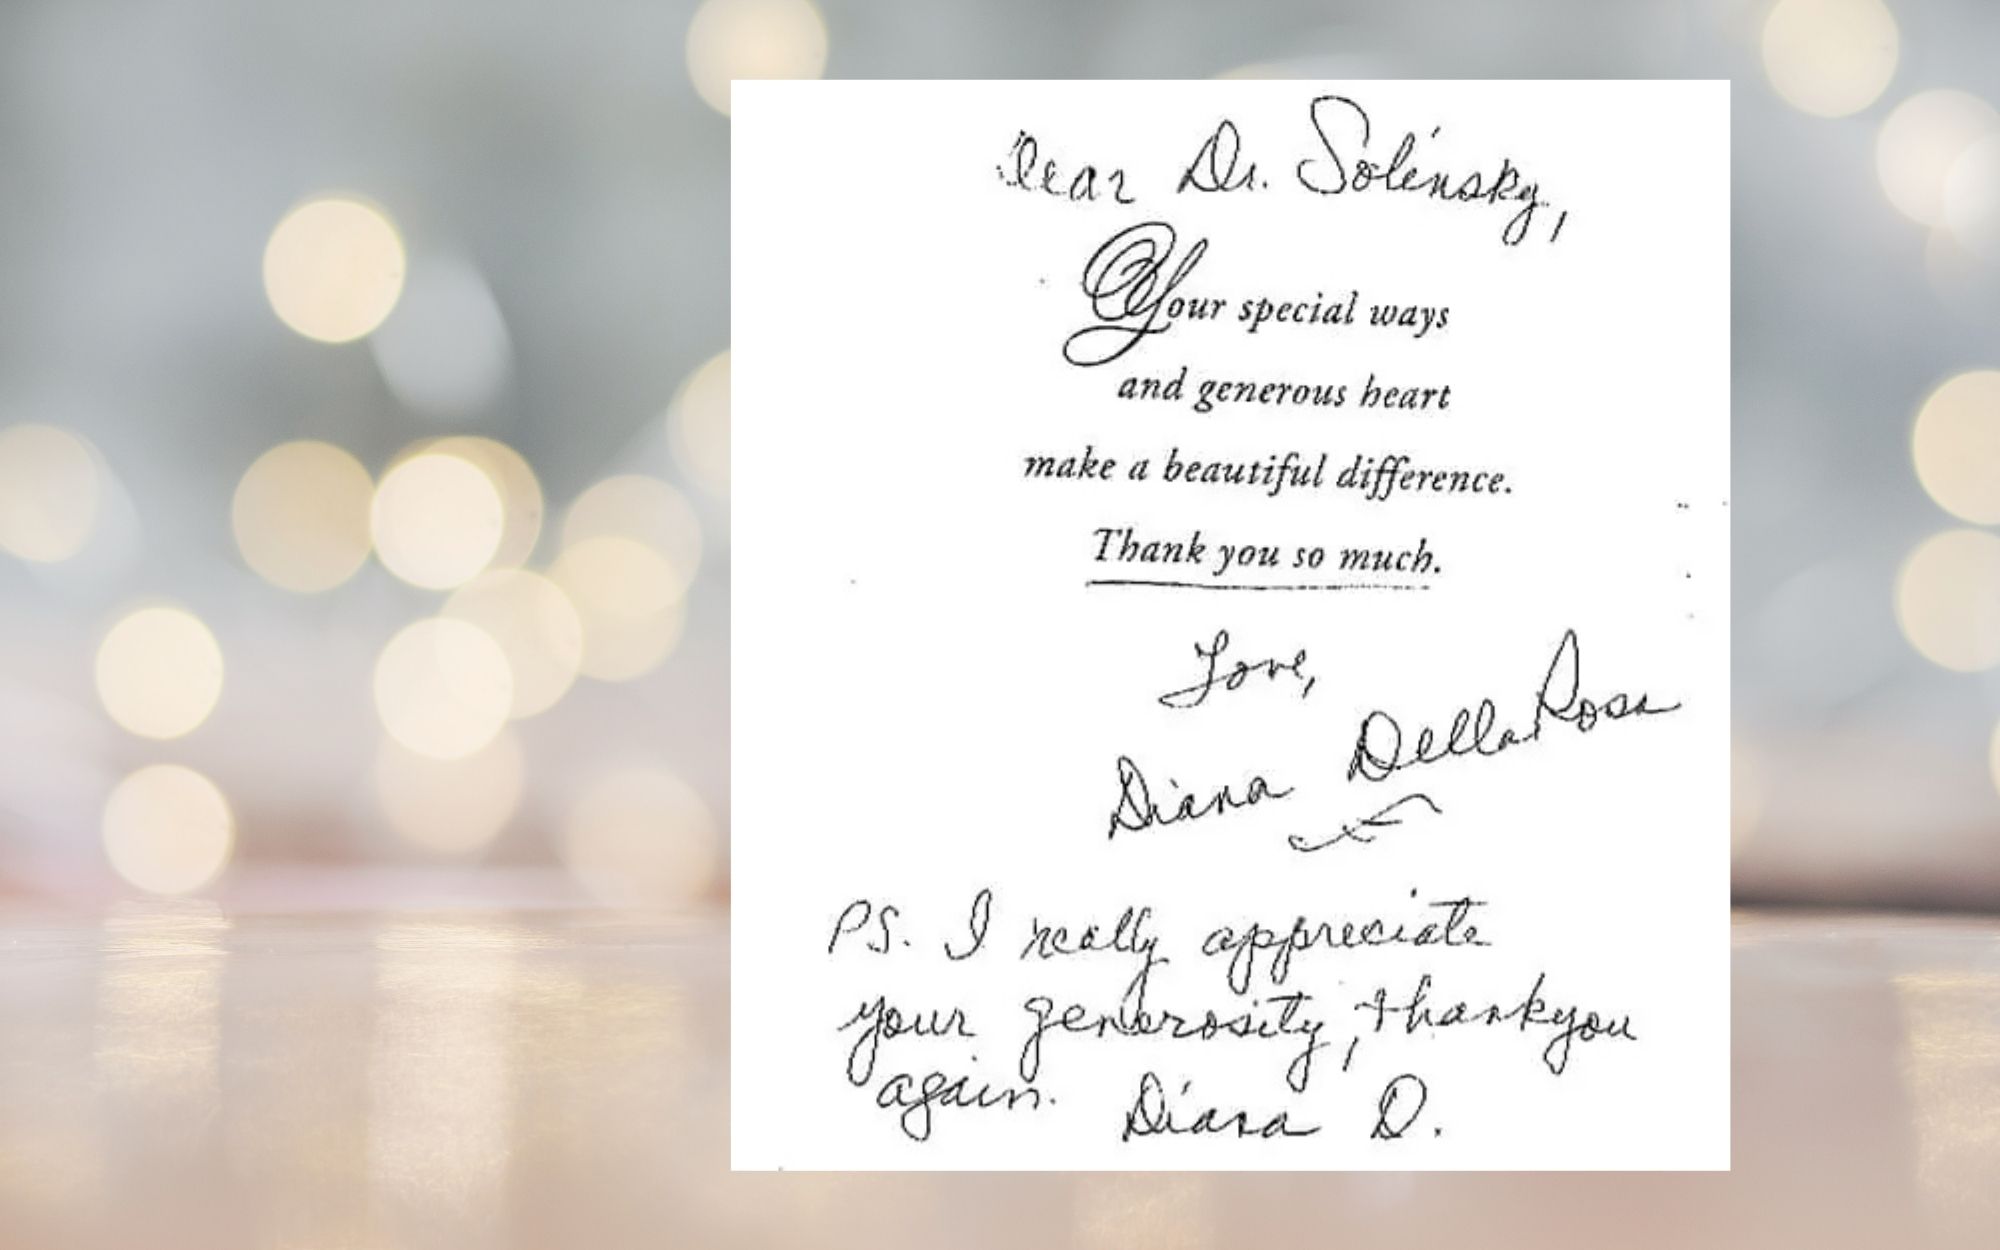 Dear Dr. Solinsky,
Your special ways
and generous heart
make a beautiful difference.
Thank you so much.
Love,
Diana DellaRosa
PS. I really appreciate
your generosity, thankyou
again. Diana D.